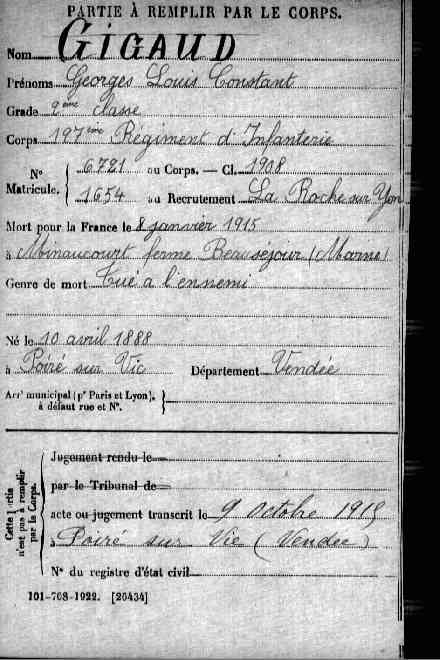 PARTIE À REMPLIR PAR LE CORPS.
Nom GIGAUD
Prénoms Georges Louis Constant
Grade 2ème classe
Corps 197ème Régiment d'Infanterie
N° Matricule. { 6721 au Corps. — Cl. 1908
1654 au Recrutement La Roche sur Yon
Mort pour la France le 8 janvier 1915
à Minaucourt ferme Beauséjour (Marne)
Genre de mort Tué a l'ennemi
Né le 10 avril 1888
à Poiré sur Vic Département Vendée
Arrt municipal (pr Paris et Lyon), }
à défaut rue et N°.
Cette partie n'est pas à remplir par le Corps.
Jugement rendu le
par le Tribunal de
acte ou jugement transcrit le 9 Octobre 1915
à Poiré sur Vie (Vendée)
N° du registre d'état civil
101-708-1922. [26434]